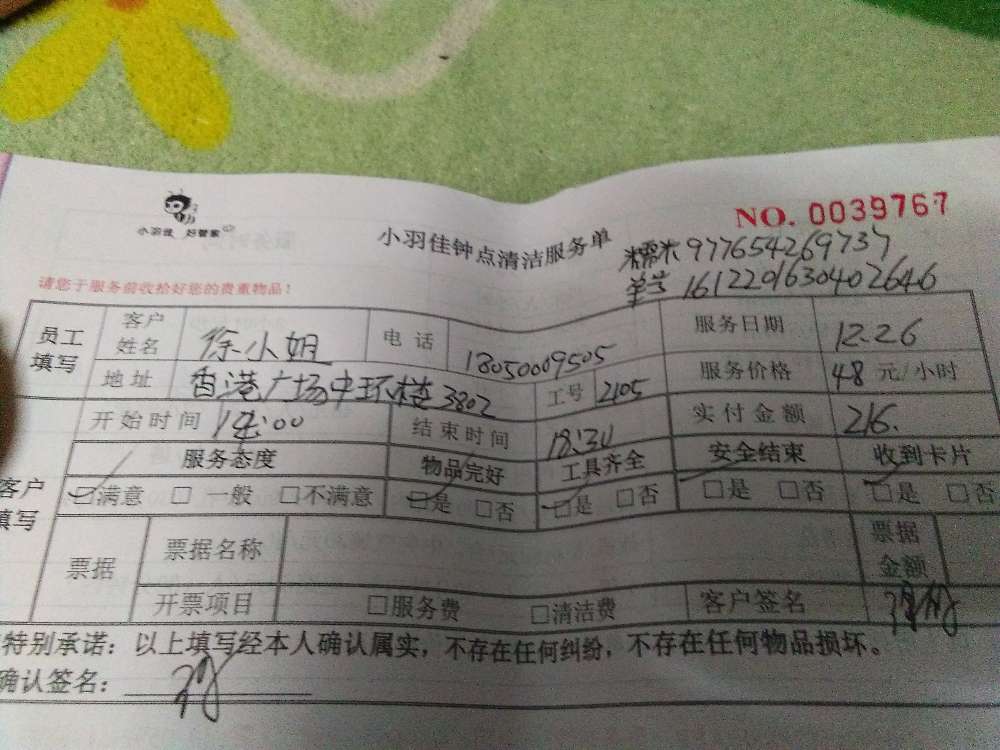 小羽佳 好管家
小羽佳钟点清洁服务单
NO. 0039767
糯米 977654269737
单号 1612201630402646
请您于服务前收拾好您的贵重物品!
员工填写 客户姓名 徐小姐 电话 18050009505 服务日期 12.26
地址 香港广场中环楼3802 工号 2105 服务价格 48 元/小时
客户填写 开始时间 14:00 结束时间 18:30 实付金额 216.
服务态度 物品完好 工具齐全 安全结束 收到卡片
□满意 □一般 □不满意 □是 □否 □是 □否 □是 □否 □是 □否
票据 票据名称 票据金额
开票项目 □服务费 □清洁费 客户签名
特别承诺:以上填写经本人确认属实,不存在任何纠纷,不存在任何物品损坏。
确认签名: